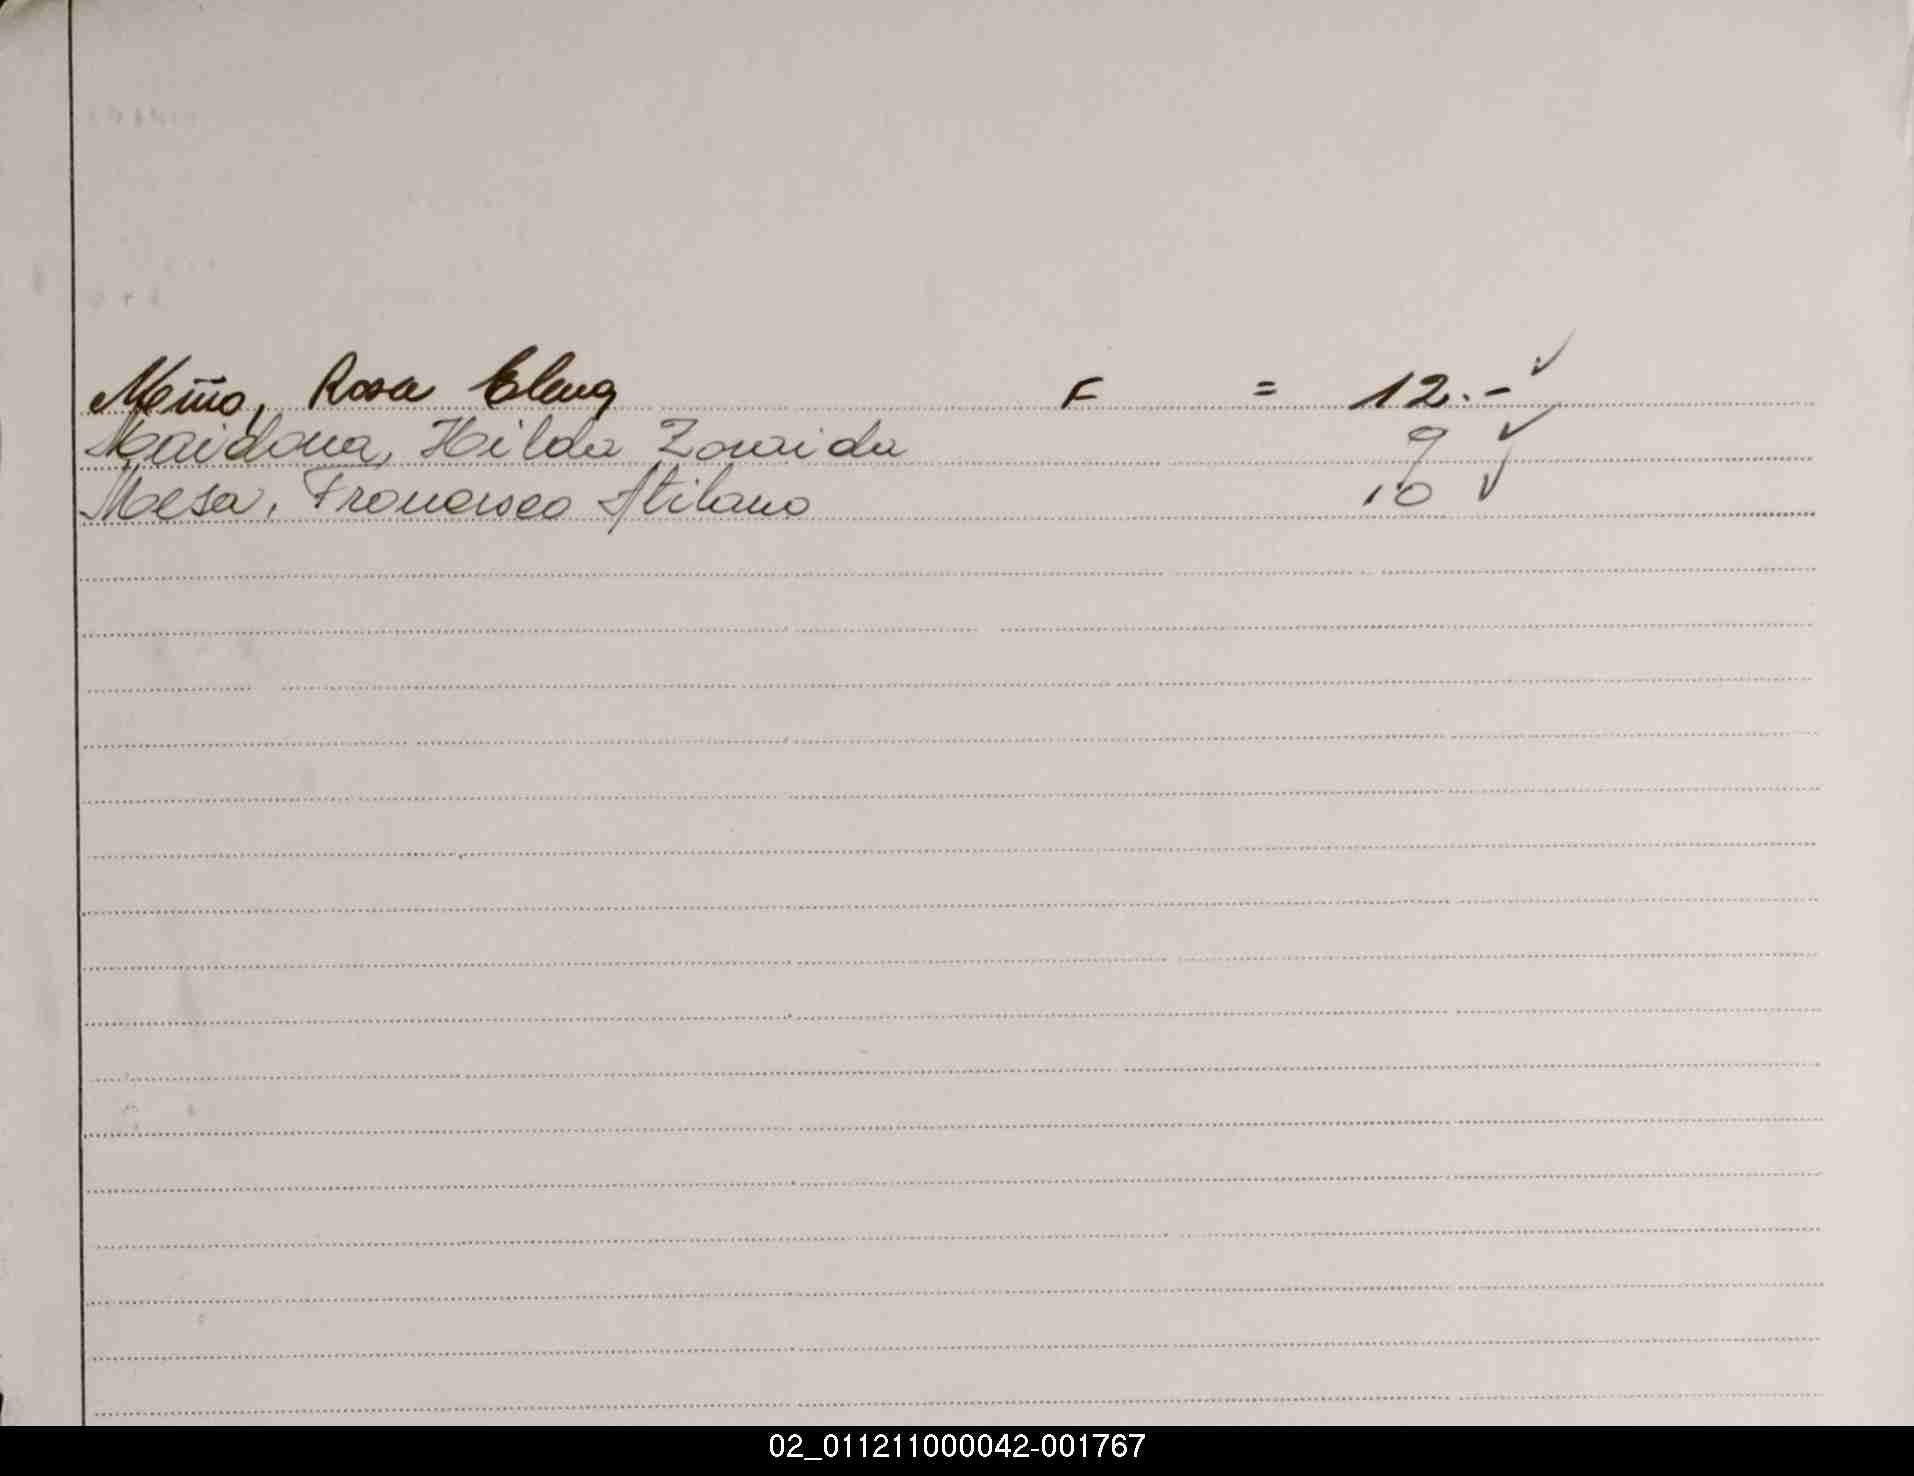 Meiño, Rosa Elena F = 12.- ✓
Maidana, Hilda Zoraida 9 ✓
Mesa, Francisco Atilano 10 ✓
02_011211000042-001767